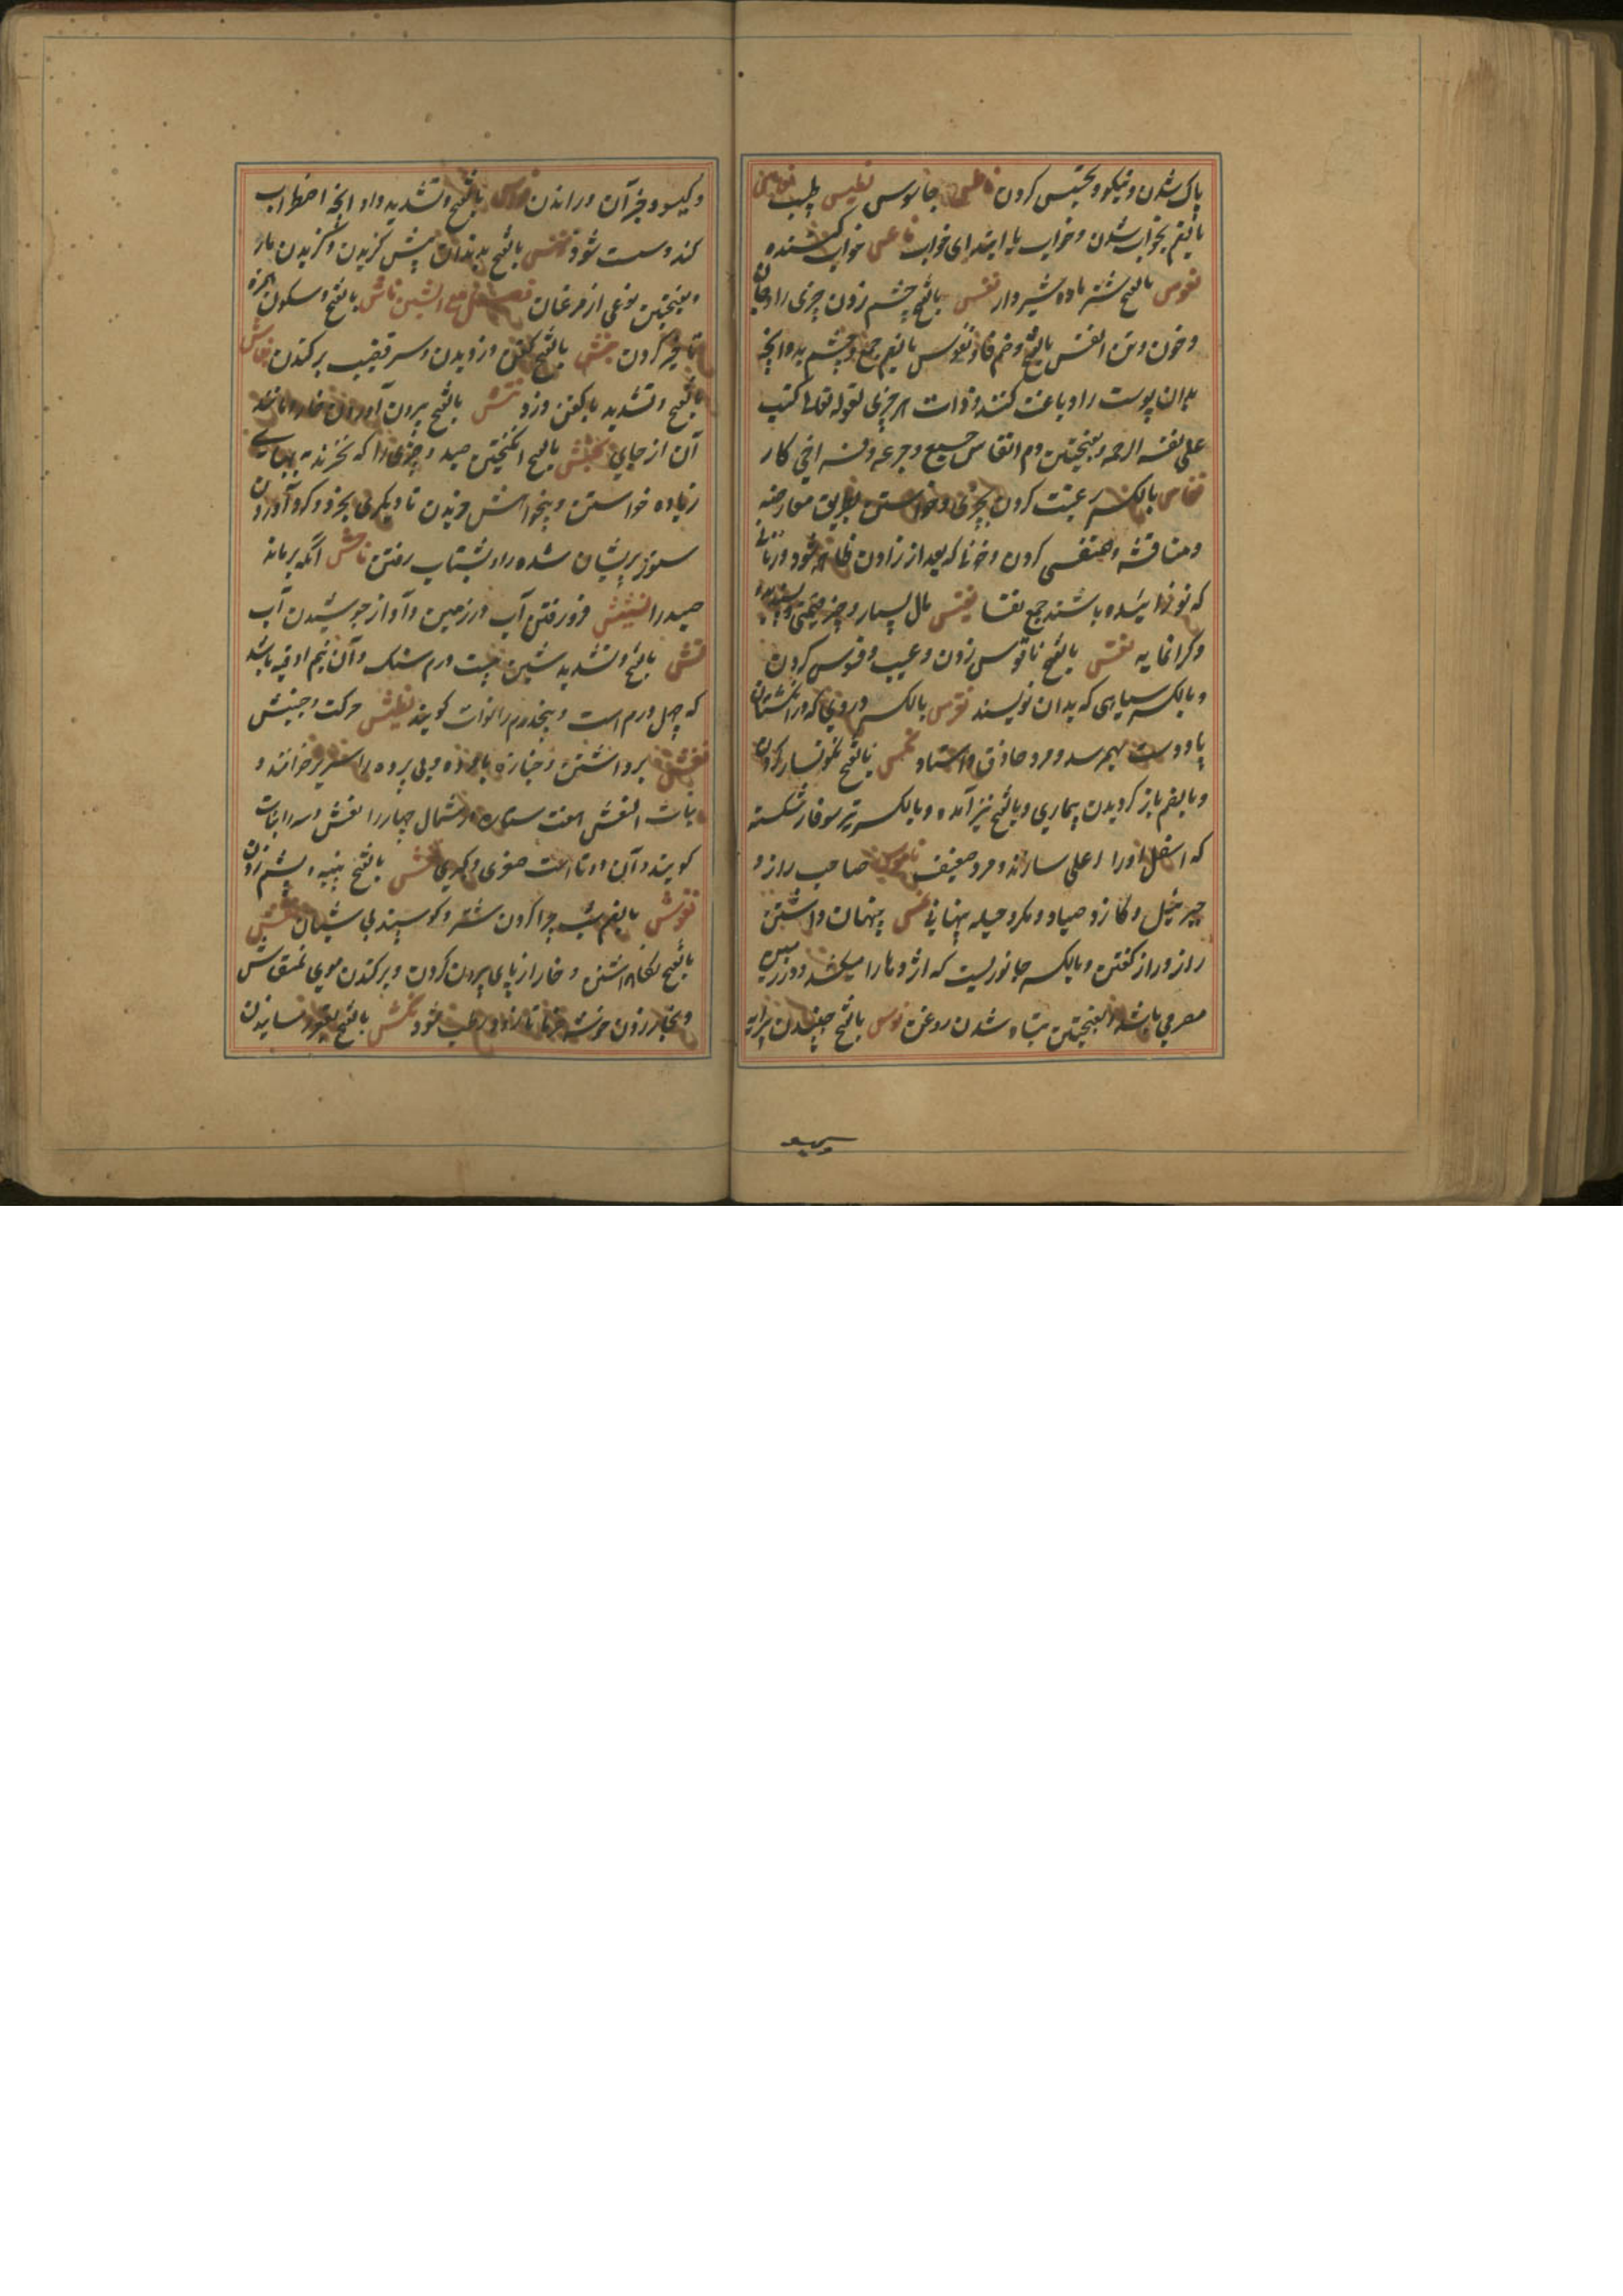 پاک شدن و نیکو و تجسس کردن ناطس جاسوس نطیس طبیب نعاس
بالضم بخواب شدن و خواب یا ابتدای خواب ناعس خواب کننده
نعوس بالفتح شتر ماده شیردار نفس بالفتح چشم زدن چیزی را و جان
و خون و تن انفس بالفتح و ضم فا و نفوس بالضم جمع و چشم بد و آنچه
بدان پوست را دباغت کنند و ذات هر چیزی لقوله تعالی کتب
علی نفسه الرحمه و بفتحتین دم انفاس جمع و جرعه و
نفاس بالکسر رغبت کردن بچیزی و خواستن بطریق معارضه
و مناقشه و کردن و خونی که بعد از زادن ظاهر شود و زنانی
که نو زائیده باشند جمع نفسا نفیس مال بسیار و چیز قیمتی و پسندیده
و گرانمایه نقس بالفتح ناقوس زدن و عیب و فسوس کردن
و بالکسر سیاهی که بدان نویسند نقرس بالکسر دردی که در انگشتان
پا و دست بهم رسد و مرد حاذق و استاد نکس بالفتح نگونسار کردن
و بالضم باز گردیدن بیماری و بالفتح نیز آمده و بالکسر تیر سوفار شکسته
که اسفل او را اعلی سازند و مرد ضعیف ناموس صاحب راز و
جبرئیل و کازه صیاد و مکر و حیله پنهانی نمس پنهان داشتن
راز و راز گفتن و بالکسر جانوریست که اژدها را میکشد و در زمین
مصر می باشد و بفتحتین تباه شدن روغن نوس بالفتح جنبیدن پیرایه
وکیسو
و گیسو و جز آن و راندن نواس بالفتح و تشدید واو آنچه اضطراب
کند و سست شود نهس بالفتح بدندان پیش گزیدن و گزیدن مار
و بفتحتین نوعی از مرغان فصل مع الشین نأش بالفتح و سکون همزه
تأخیر کردن نبش بالفتح کفن دزدیدن و سر برکندن نباش
بالفتح و تشدید با کفن دزد نتش بالفتح بیرون آوردن خار و مانند
آن از جای نجش بالفتح انگیختن صید و چیزی را که نخرند به بهای
زیاده خواستن و بخواهش خریدن تا دیگری بخرد و گرد آوردن
ستور پریشان شده را و بشتاب رفتن ناجش آنکه برماند
صید را نشیش فرو رفتن آب در زمین و آواز جوشیدن آب
نش بالفتح و تشدید شین بیست درم سنگ و آن نیم اوقیه باشد
که چهل درم است و پنجدرم را نوات گویند نطیش حرکت و جنبش
نعش برداشتن و جنازه با مرده و بی مرده را سریر خوانند و
بنات النعش هفت ستاره از شمال چهار را نعش و سه را بنات
گویند و آن دو تا است صغری و کبری نفش بالفتح پنبه و پشم زدن
نفوش بالضم بشب چرا کردن شتر و گوسپند بی شبان نقش
بالفتح نگاشتن و خار از پای بیرون کردن و برکندن موی بمنقاش
و بخار زدن خوشه خرما تا زود رطب شود نکش بالفتح